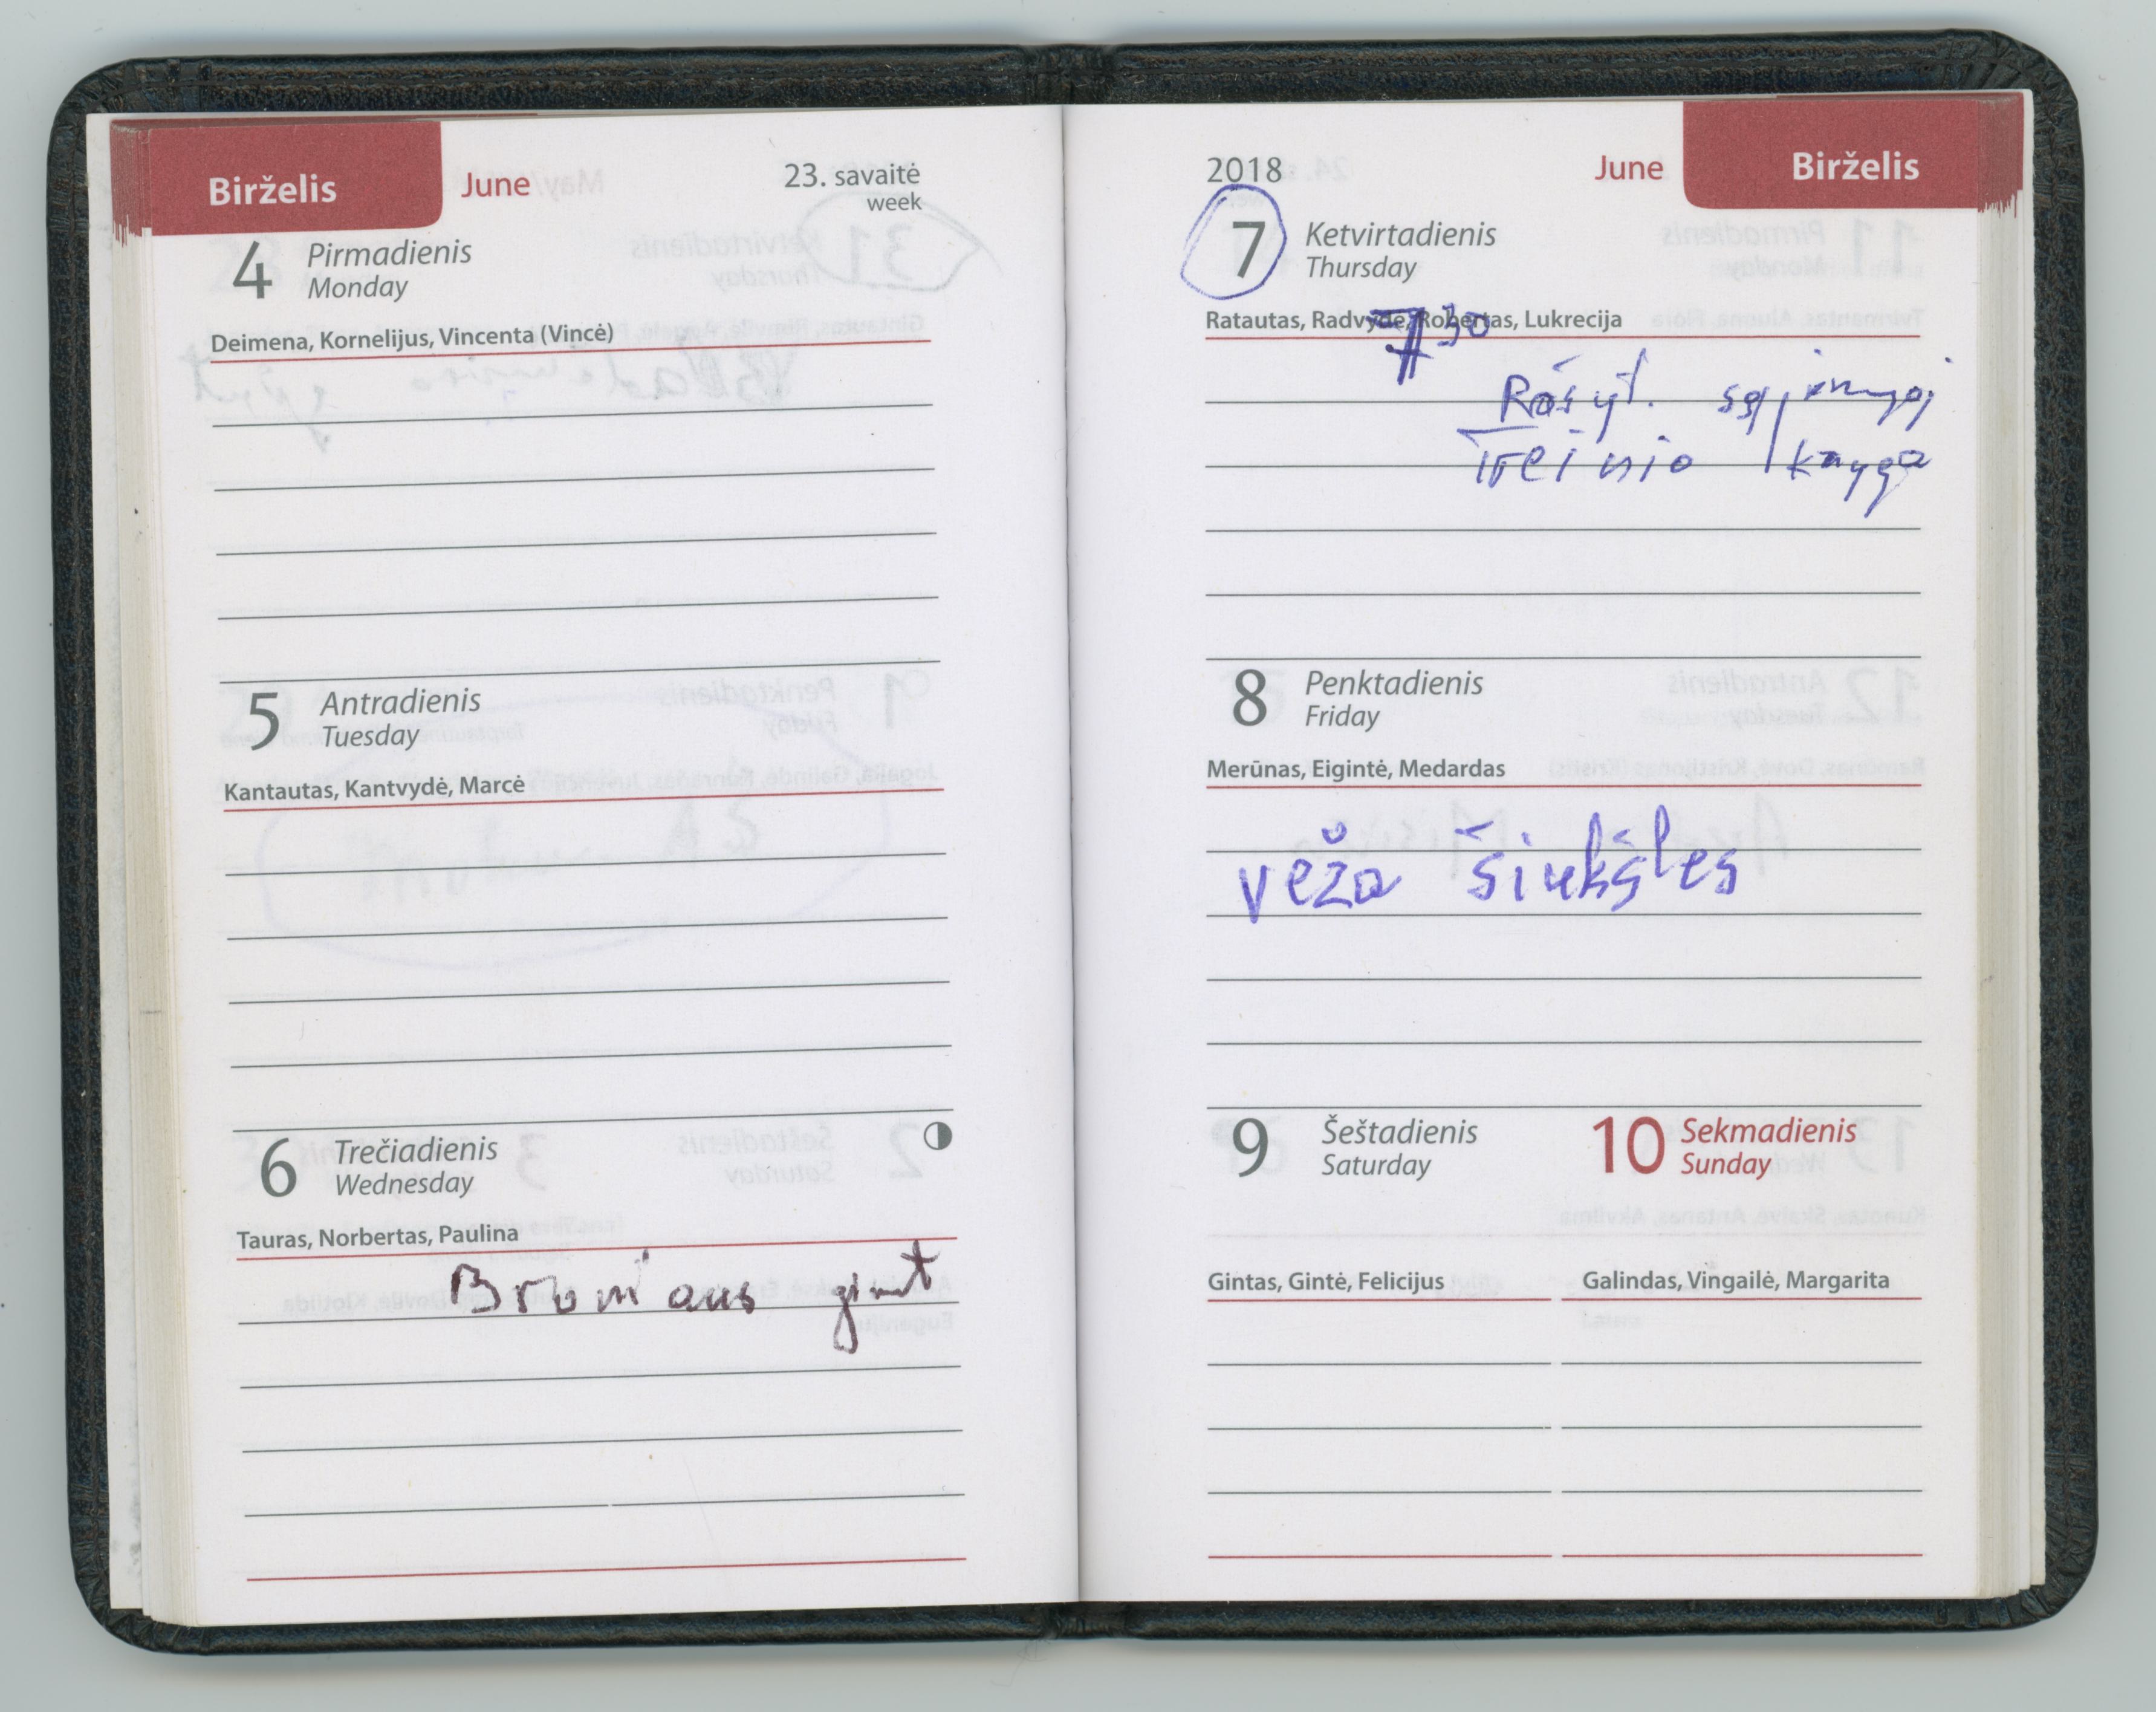 Birželis June 23. savaitė
week
4 Pirmadienis
Monday
Deimena, Kornelijus, Vincenta (Vincė)
5 Antradienis
Tuesday
Kantautas, Kantvydė, Marcė
6 Trečiadienis
Wednesday
Tauras, Norbertas, Paulina
Broniaus gimt
2018 June Birželis
7 Ketvirtadienis
Thursday
Ratautas, Radvydė, Robertas, Lukrecija
7 30
Rašyt. sąjungoj
knyga
8 Penktadienis
Friday
Merūnas, Eigintė, Medardas
veža šiukšles
9 Šeštadienis
Saturday
10 Sekmadienis
Sunday
Gintas, Gintė, Felicijus
Galindas, Vingailė, Margarita